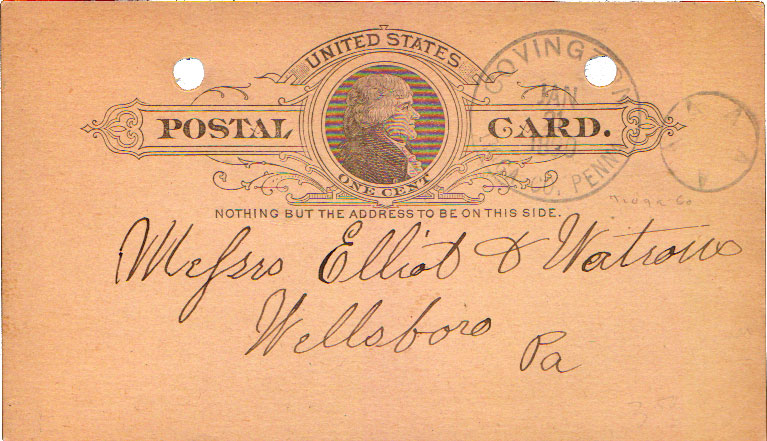 UNITED STATES
POSTAL CARD.
ONE CENT
COVINGTON
JAN
CO. PENN
NOTHING BUT THE ADDRESS TO BE ON THIS SIDE.
Tioga Co
Messrs Elliot & Watrous
Wellsboro
Pa